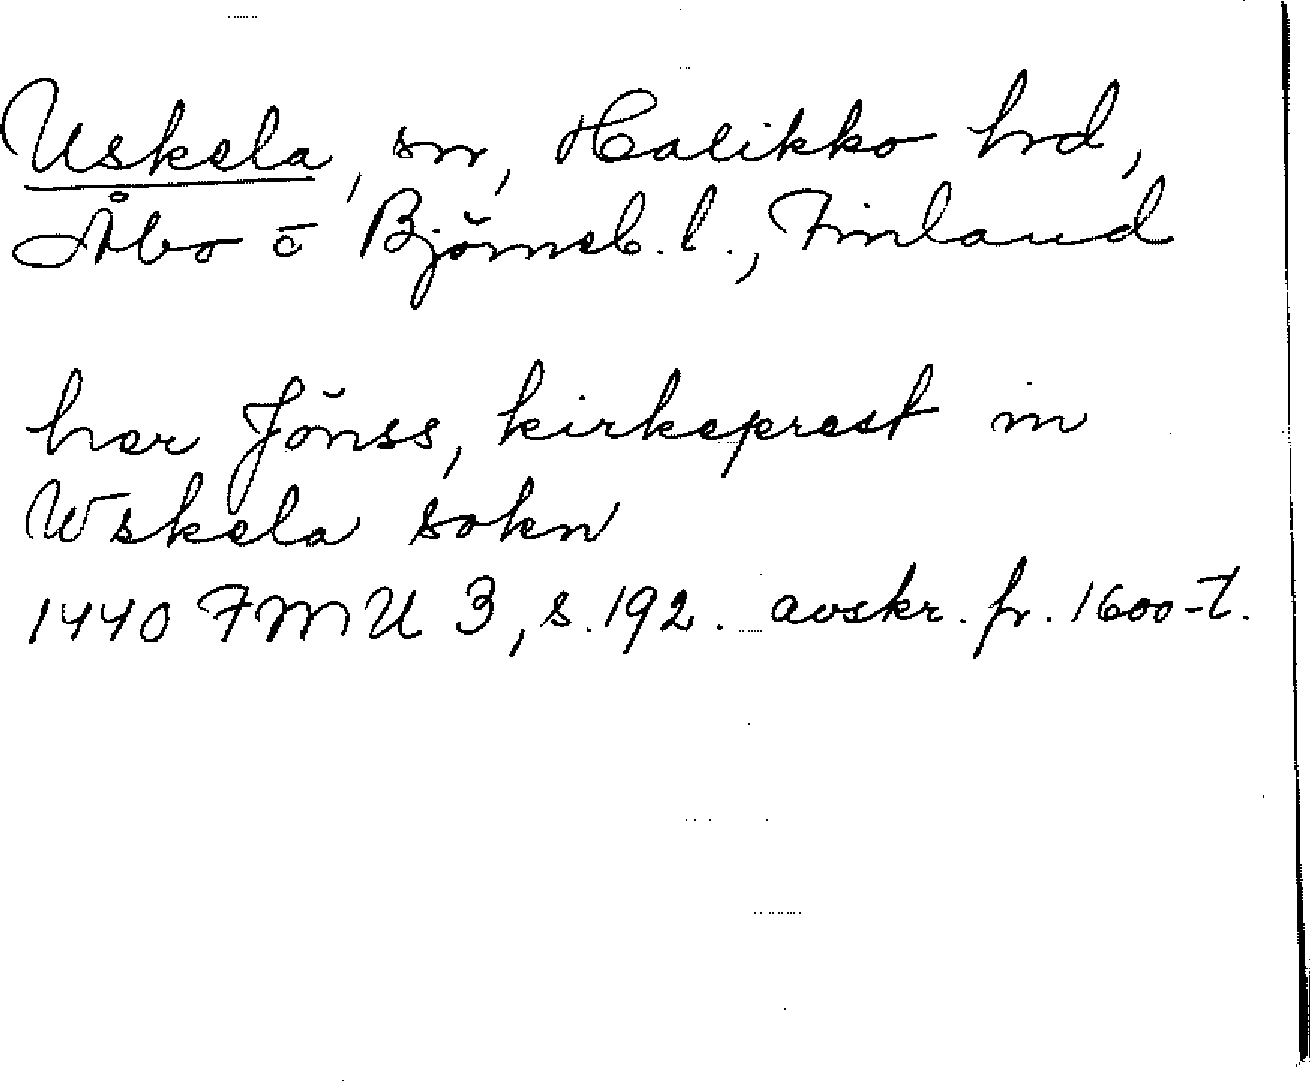 Uskela, sn, Halikko hd,
Åbo o Björneb. l., Finland
her Jönss, kirkeprest in
Wskela sokn
1440 FMU 3, s. 192. avskr. fr. 1600-t.